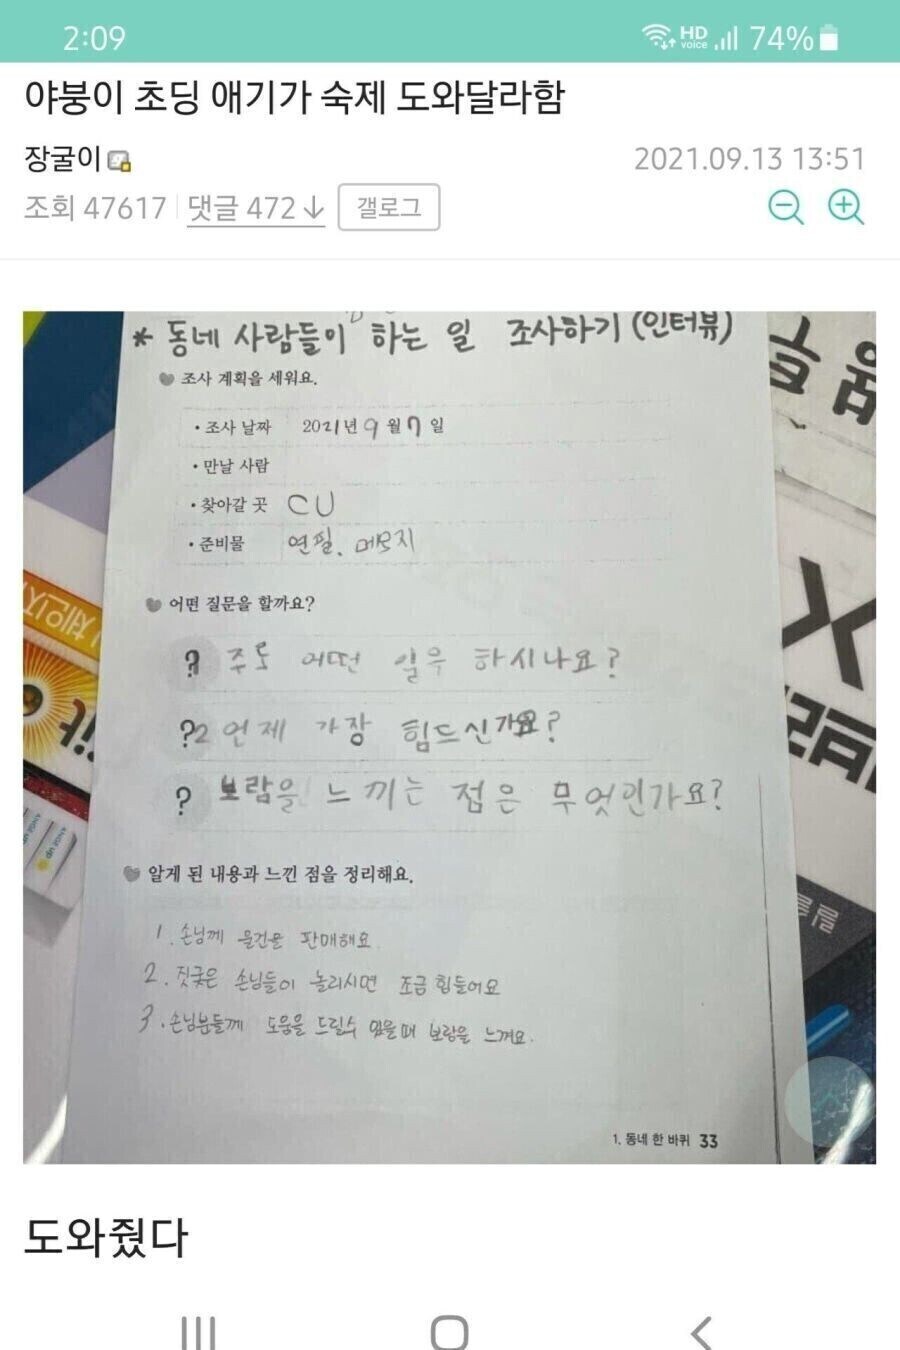 2:09 HD voice 74%
야붕이 초딩 애기가 숙제 도와달라함
장굴이
2021.09.13 13:51
조회 47617 댓글 472↓ 갤로그
* 동네 사람들이 하는 일 조사하기 (인터뷰)
조사 계획을 세워요.
• 조사 날짜 2021년 9월 7일
• 만날 사람
• 찾아갈 곳 CU
• 준비물 연필, 메모지
어떤 질문을 할까요?
? 주로 어떤 일을 하시나요?
?2 언제 가장 힘드신가요?
? 보람을 느끼는 점은 무엇인가요?
알게 된 내용과 느낀 점을 정리해요.
1. 손님께 물건을 판매해요.
2. 짓궂은 손님들이 놀리시면 조금 힘들어요
3. 손님분들께 도움을 드릴수 있을때 보람을 느껴요.
1. 동네 한 바퀴 33
도와줬다